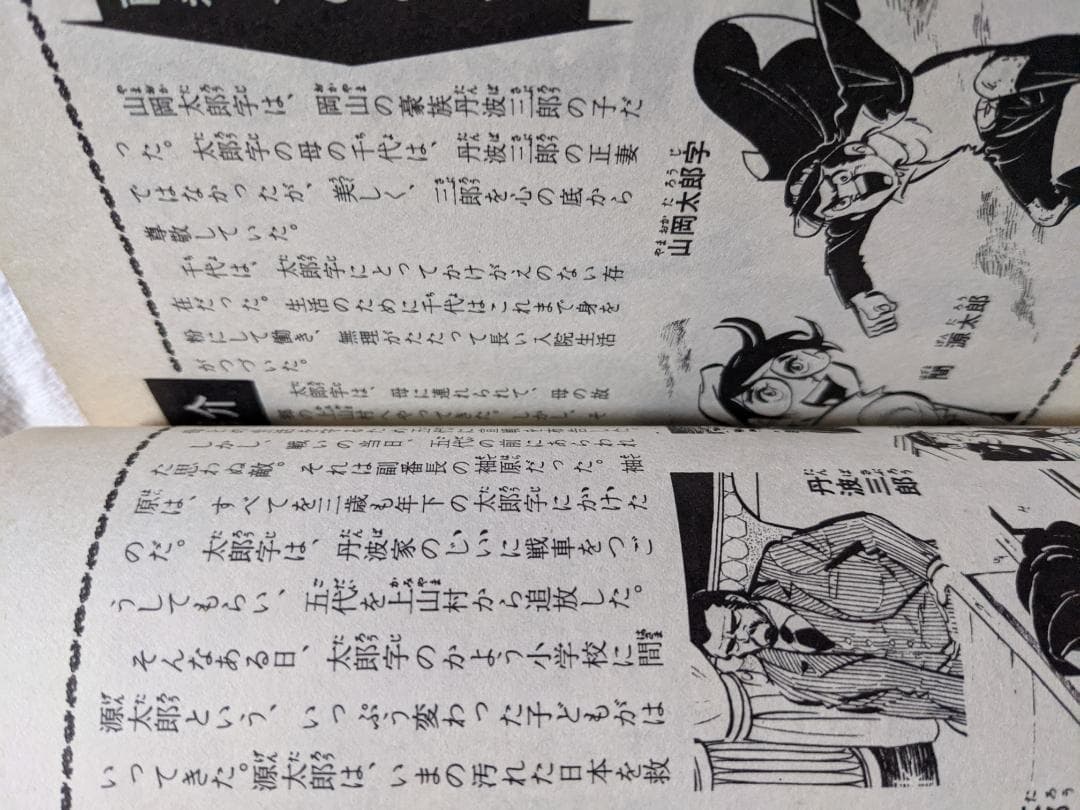 山岡太郎字は、岡山の豪族丹波三郎の子だ
った。太郎字の母の千代は、丹波三郎の正妻
ではなかったが、美しく、三郎を心の底から
尊敬していた。
千代は、太郎字にとってかけがえのない存
在だった。生活のために千代はこれまで身を
粉にして働き、無理がたたって長い入院生活
がつづいた。
太郎字は、母に連れられて、母の故
村へやってきた。しかし、そ
介
山岡太郎字
源太郎
しかし、戦いの当日、五代の前にあらわれ
た思わぬ敵。それは副番長の袖原だった。袖
原は、すべてを三歳も年下の太郎字にかけた
のだ。太郎字は、丹波家のじいに戦車をつご
うしてもらい、五代を上山村から追放した。
そんなある日、太郎字のかよう小学校に間
源太郎という、いっぷう変わった子どもがは
いってきた。源太郎は、いまの汚れた日本を救
丹波三郎